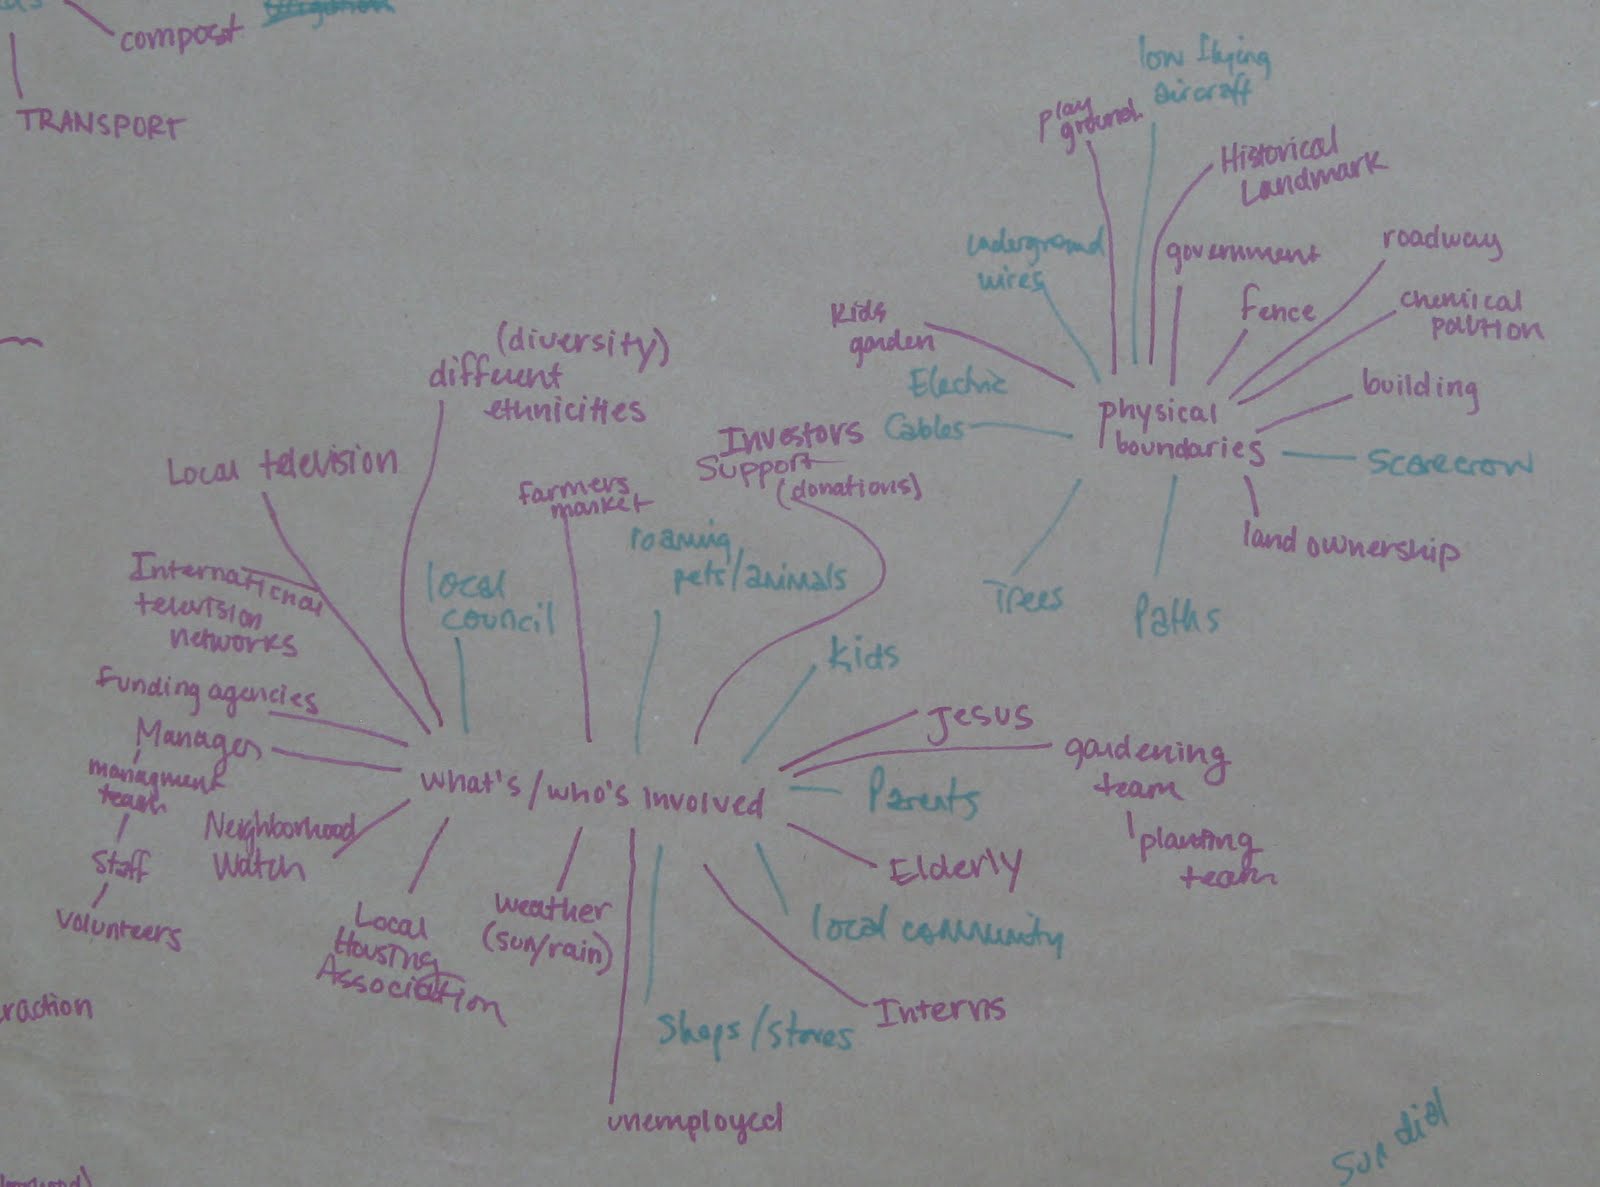 compost
TRANSPORT
low flying
aircraft
play
ground
Historical
Landmark
underground
wires
government
roadway
Kids
garden
fence
chemical
pollution
Electric
Cables
building
physical
boundaries
scarecrow
land ownership
Trees
Paths
(diversity)
different
ethnicities
Local television
Investors
Support
(donations)
farmers
market
roaming
pets/animals
International
television
networks
local
council
kids
Funding agencies
Manager
managment
team
Staff
volunteers
what's/who's involved
Jesus
gardening
team
planting
team
Parents
Neighborhood
Watch
Elderly
Local
Housing
Association
weather
(sun/rain)
local community
Interns
Shops/stores
unemployed
raction
sun dial